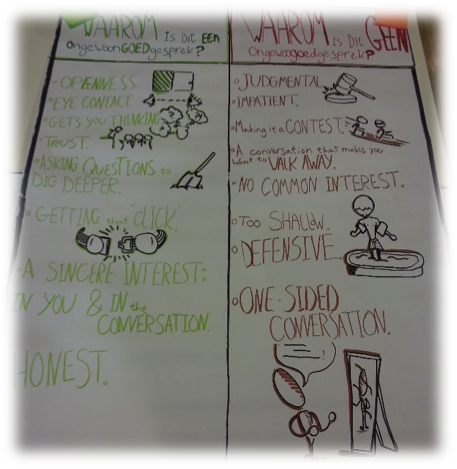 WAAROM IS Dit EEN
OngewoonGOEDgesprek?
• OPENNESS.
• EYE CONTACT.
• GETS YOU THINKING
• TRUST.
• ASKING QUESTIONS to
DIG DEEPER.
• GETTING that "CLICK"
• A SINCERE INTEREST:
IN YOU & IN the
CONVERSATION.
HONEST.
WAAROM IS Dit GEEN
Ongewoongoedgesprek?
• JUDGMENTAL
• IMPATIENT.
• Making it a CONTEST.
• A conversation that makes you
want to WALK AWAY.
• NO COMMON INTEREST.
• TOO SHALLOW.
• DEFENSIVE.
• ONE-SIDED
CONVERSATION.